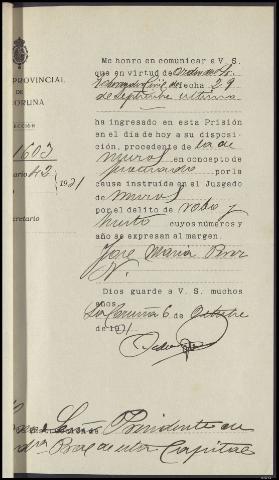 PROVINCIAL
DE
ORUÑA
CCIÓN
1603
ario 42 / 1931
cretario
Me honro en comunicar a V. S.
que en virtud de orden del
Gobernador Civil de fecha 29
de Septiembre último
ha ingresado en esta Prisión
en el día de hoy a su disposi-
ción, procedente de la de
Muros en concepto de
procesado por la
causa instruida en el Juzgado
de Muros
por el delito de robo y
hurto cuyos números y
año se expresan al margen.
José María
Dios guarde a V. S. muchos
años.
La Coruña 6 de Octubre
de 1931
Señor Presidente de
Pral de esta Capital